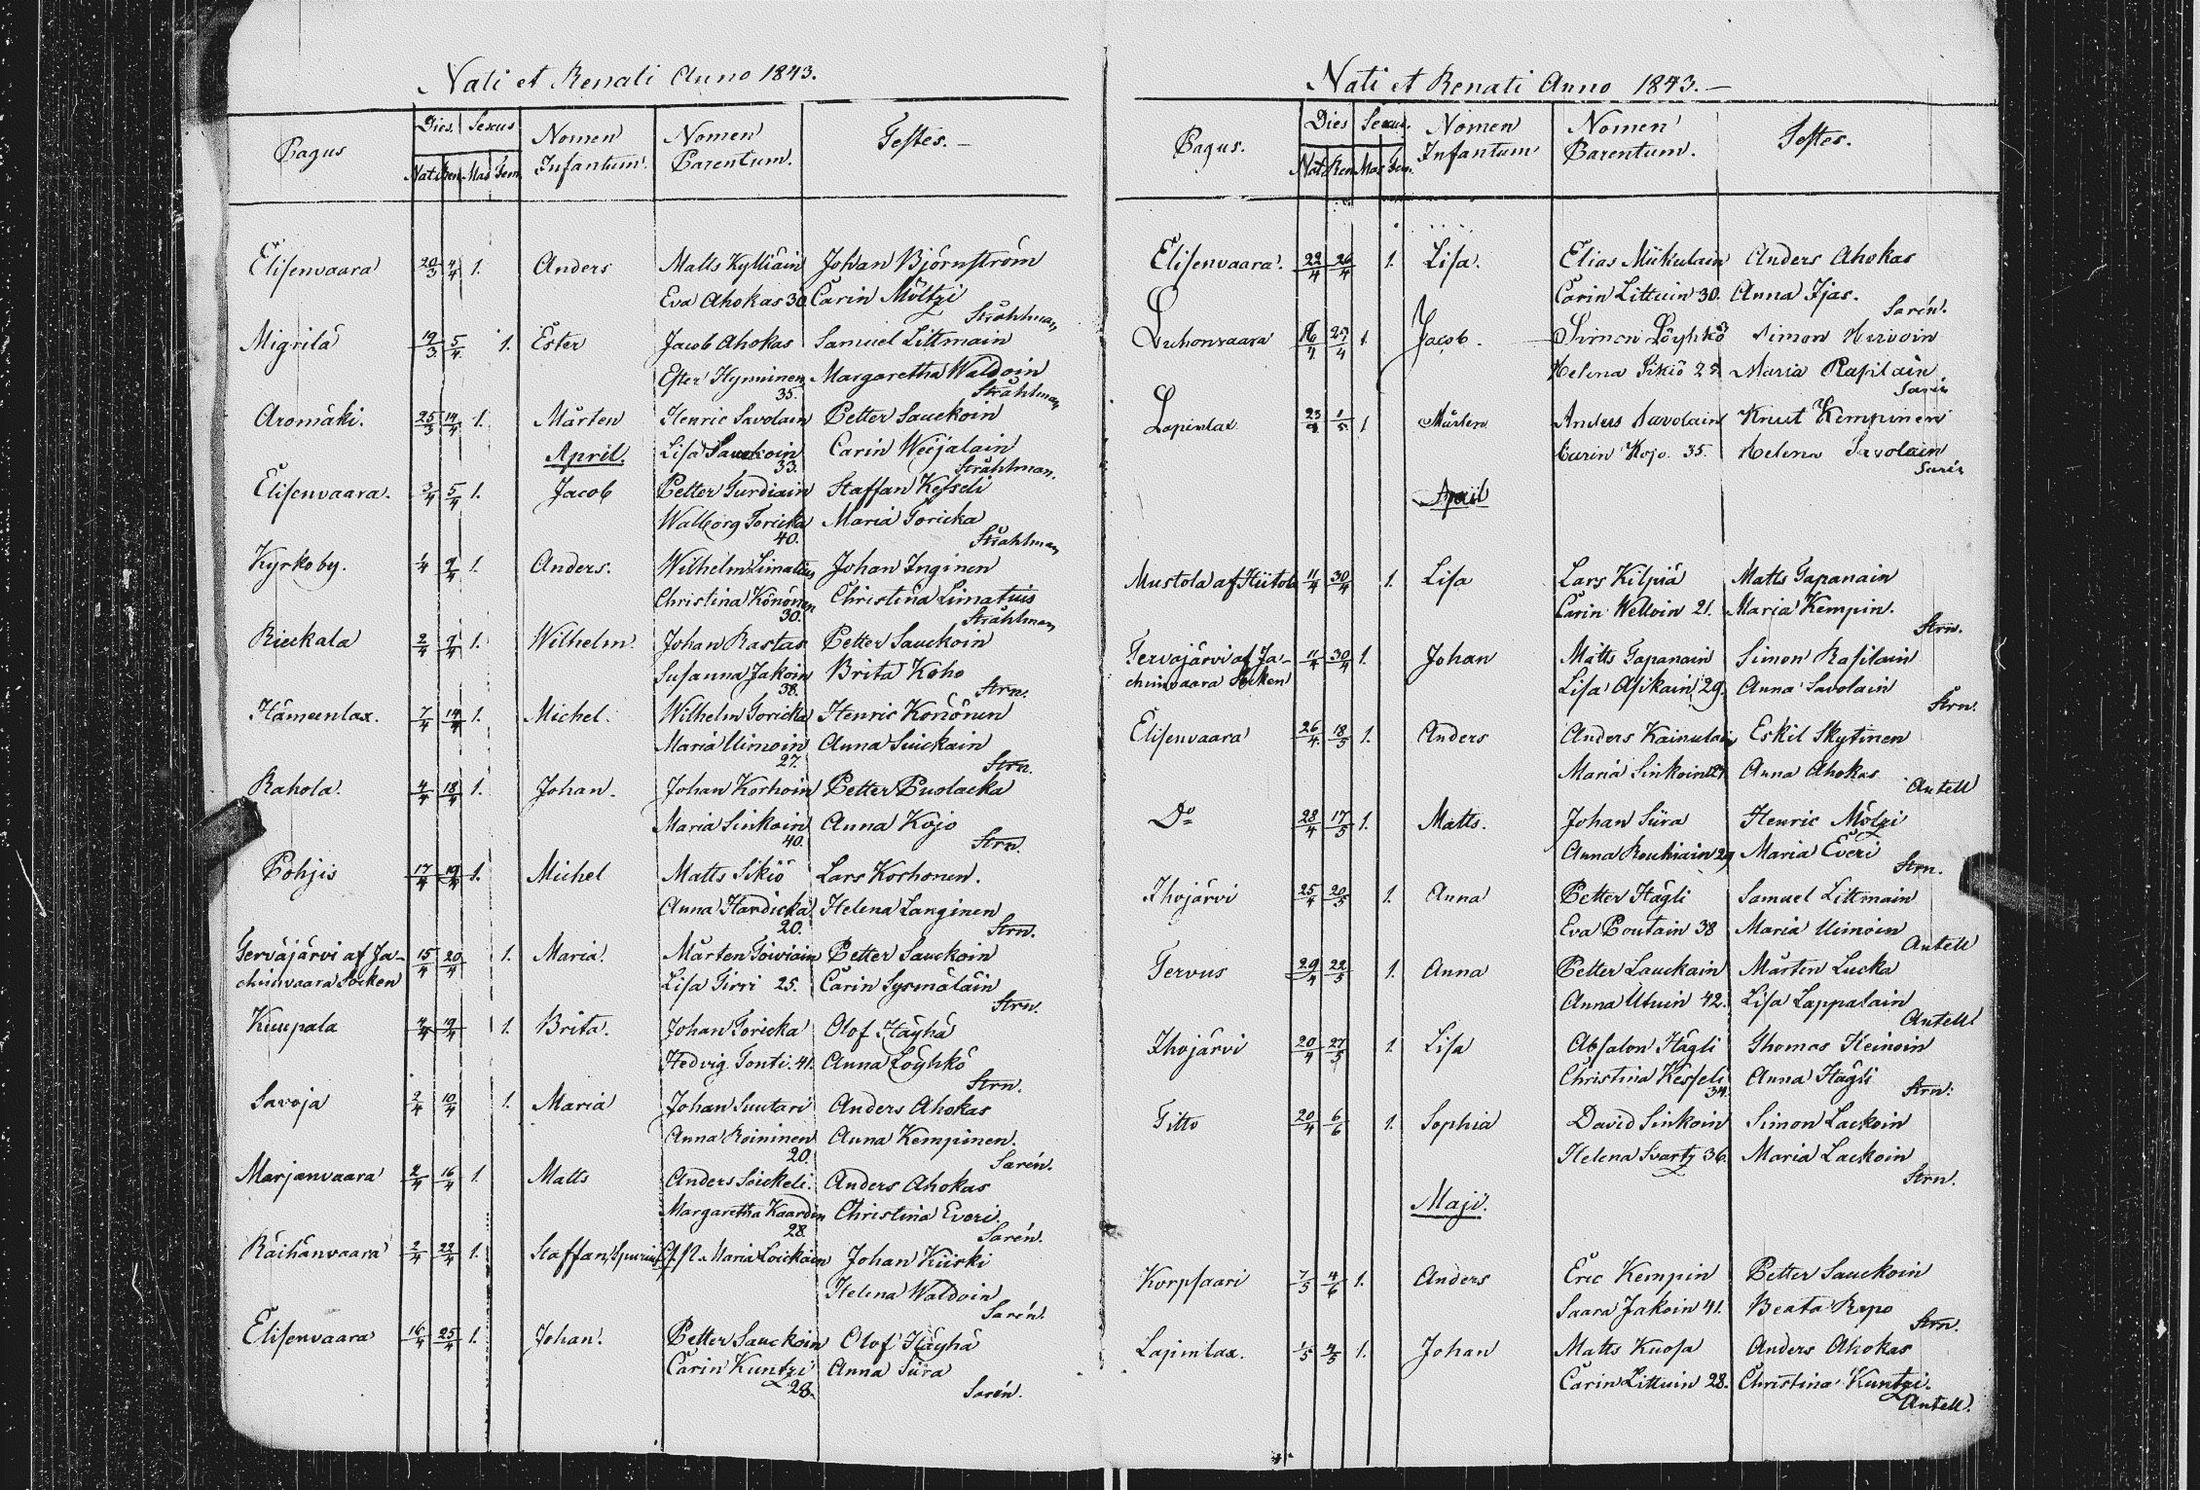 Nati et Renati Anno 1843.
Pagus Dies. Sexus Nomen Infantum. Nomen Parentum. Testes.
Nat. Ren. Mas. Fem.
Elisenvaara 20/3 4/4 1. Anders Matts Kylliäin Johan Björnström
Eva Ahokas 30. Carin Möltzi
Stråhlman
Migrilä 19/3 5/4 1. Ester Jacob Ahokas Samuel Littmain
Ester Hynninen 35. Margaretha Waldoin
Stråhlman
Aromäki. 25/3 14/4 1. Mårten Henric Savolain Petter Sauckoin
April. Lisa Sauckoin 33. Carin Weijalain
Stråhlman.
Elisenvaara. 3/4 5/4 1. Jacob Petter Turdiain Staffan Kesseli
Walborg Toricka 40. Maria Toricka
Stråhlman
Kyrkoby. 1/4 9/4 1. Anders. Wilhelm Limatius Johan Inginen
Christina Könönen 30. Christina Limatius
Stråhlman
Rieckala 2/4 9/4 1. Wilhelm. Johan Rastas Petter Sauckoin
Susanna Jakoin 38. Brita Koho
Strn.
Hämeenlax. 7/4 14/4 1. Michel. Wilhelm Toricka Henric Könönen
Maria Uimoin 27. Anna Suickain
Strn.
Rahola. 4/4 18/4 1. Johan. Johan Korhoin Petter Puolacka
Maria Sinkoin 40. Anna Kojo
Strn.
Pohjis 17/4 19/4 1. Michel Matts Sikiö Lars Korhonen.
Anna Hardicka 20. Helena Langinen
Strn.
Tervajärvi af Ja- 15/4 20/4 1. Maria. Mårten Toiviain Petter Sauckoin
chimvaara Socken Lisa Tirri 25. Carin Sysmäläin
Strn.
Kuupala 4/4 19/4 1. Brita. Johan Toricka Olof Häyhä
Hedvig Tonti. 41. Anna Löyhkö
Strn.
Savoja 2/4 10/4 1. Maria Johan Suutari Anders Ahokas
Anna Roininen 20. Anna Kempinen.
Sarén.
Marjanvaara 2/4 16/4 1. Matts Anders Soickeli. Anders Ahokas
Margaretha Kaardin 28. Christina Everi.
Sarén.
Räihänvaara 2/4 22/4 1. Staffan, Spurius Maria Loickain Johan Kiiski
Helena Waldoin
Sarén.
Elisenvaara 16/4 25/4 1. Johan. Petter Sauckoin Olof Häyhä
Carin Kuntzi 28. Anna Siira
Sarén.
Nati et Renati Anno 1843.
Pagus. Dies Sexus. Nomen Infantum Nomen Parentum. Testes.
Nat. Ren. Mas. Fem.
Elisenvaara. 22/4 26/4 1. Lisa. Elias Miikulain Anders Ahokas
Carin Littuin 30. Anna Ijas.
Sarén.
Luhonvaara 16/4 27/4 1 Jacob. Simon Löyhkö Simon Hirvoin
Helena Sikiö 27. Maria Rasilain
Sarén
Lapinlax 23/4 1/5 1 Mårten Anders Savolain Knut Kempinen
Carin Kojo 35. Helena Savolain
Sarén
April
Mustola af Hiitola 11/4 30/4 1. Lisa Lars Kilpiä Matts Tapanain
Carin Welloin 21. Maria Kempin.
Strn.
Tervajärvi af Ja- 11/4 30/4 1. Johan Matts Tapanain Simon Rasilain
chimvaara Socken Lisa Asikain 29. Anna Savolain
Strn.
Elisenvaara 26/4 18/5 1. Anders Anders Kainulain Eskil Skytinen
Maria Sinkoin 27. Anna Ahokas
Antell
Do 28/4 17/5 1. Matts. Johan Siira Henric Mölzi
Anna Rouhiain 29 Maria Everi
Strn.
Ihojärvi 25/4 20/5 1. Anna Petter Hägli Samuel Littmain
Eva Poutain 38 Maria Uimoin
Antell
Tervus 29/4 22/5 1. Anna Petter Lauckain Mårten Lucka
Anna Utuin 42. Lisa Lappalain
Antell
Ihojärvi 20/4 27/5 1. Lisa Absalon Hägli Thomas Heinoin
Christina Kesseli 34. Anna Hägli
Strn.
Titto 20/4 6/6 1. Sophia David Sinkoin Simon Lackoin
Helena Svartz 36. Maria Lackoin
Strn.
Maji.
Korpsaari 7/5 4/6 1. Anders Eric Kempin Petter Sauckoin
Saara Jakoin 41. Beata Repo
Strn.
Lapinlax. 1/5 4/5 1. Johan Matts Kuosa Anders Ahokas
Carin Littuin 28. Christina Kuntzi.
Antell.